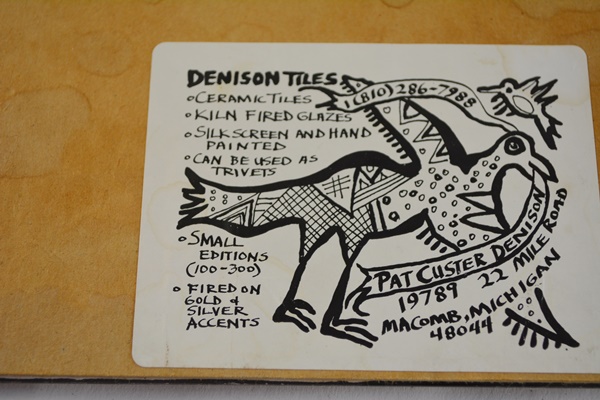 DENISON TILES
• CERAMIC TILES
• KILN FIRED GLAZES
• SILKSCREEN AND HAND
PAINTED
• CAN BE USED AS
TRIVETS
• SMALL
EDITIONS
(100-300)
• FIRED ON
GOLD &
SILVER
ACCENTS
1(810) 286-7988
PAT CUSTER DENISON
19789 22 MILE ROAD
MACOMB, MICHIGAN
48044